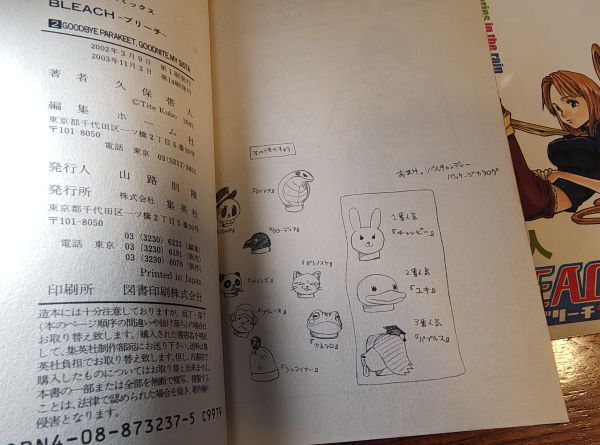 ミックス
BLEACH―ブリーチ―
2 GOODBYE PARAKEET, GOODNITE MY SISTA
2002年3月9日 第1刷発行
2003年11月3日 第14刷発行
著者 久保帯人
©Tite Kubo 2002
編集 ホーム社
東京都千代田区一ツ橋2丁目5番10号
〒101-8050
電話 東京 03(5211)2651
発行人 山路則隆
発行所 株式会社 集英社
東京都千代田区一ツ橋2丁目5番10号
〒101-8050
03(3230)6233(編集)
電話 東京 03(3230)6191(販売)
03(3230)6076(制作)
Printed in Japan
印刷所 図書印刷株式会社
造本には十分注意しておりますが、乱丁・落丁
(本のページ順序の間違いや抜け落ち)の場合は
お取り替え致します。購入された書店名を明記
して、集英社制作部宛にお送り下さい。送料は集
英社負担でお取り替え致します。但し、古書店で
購入したものについてはお取り替え出来ません。
本書の一部または全部を無断で複写、複製する
ことは、法律で認められた場合を除き、著作権の
侵害となります。
ISBN4-08-873237-5 C9979
その他のキャラ
おまけ。ソウルキャンディー
パッケージカタログ
『ダイアナ』
『クローディア』
『ギンノスケ』
『ブルース』
『カムロ』
『シュライナー』
1番人気
『チャッピー』
2番人気
『ユキ』
3番人気
『パプルス』
in the rain
人
ブリーチ